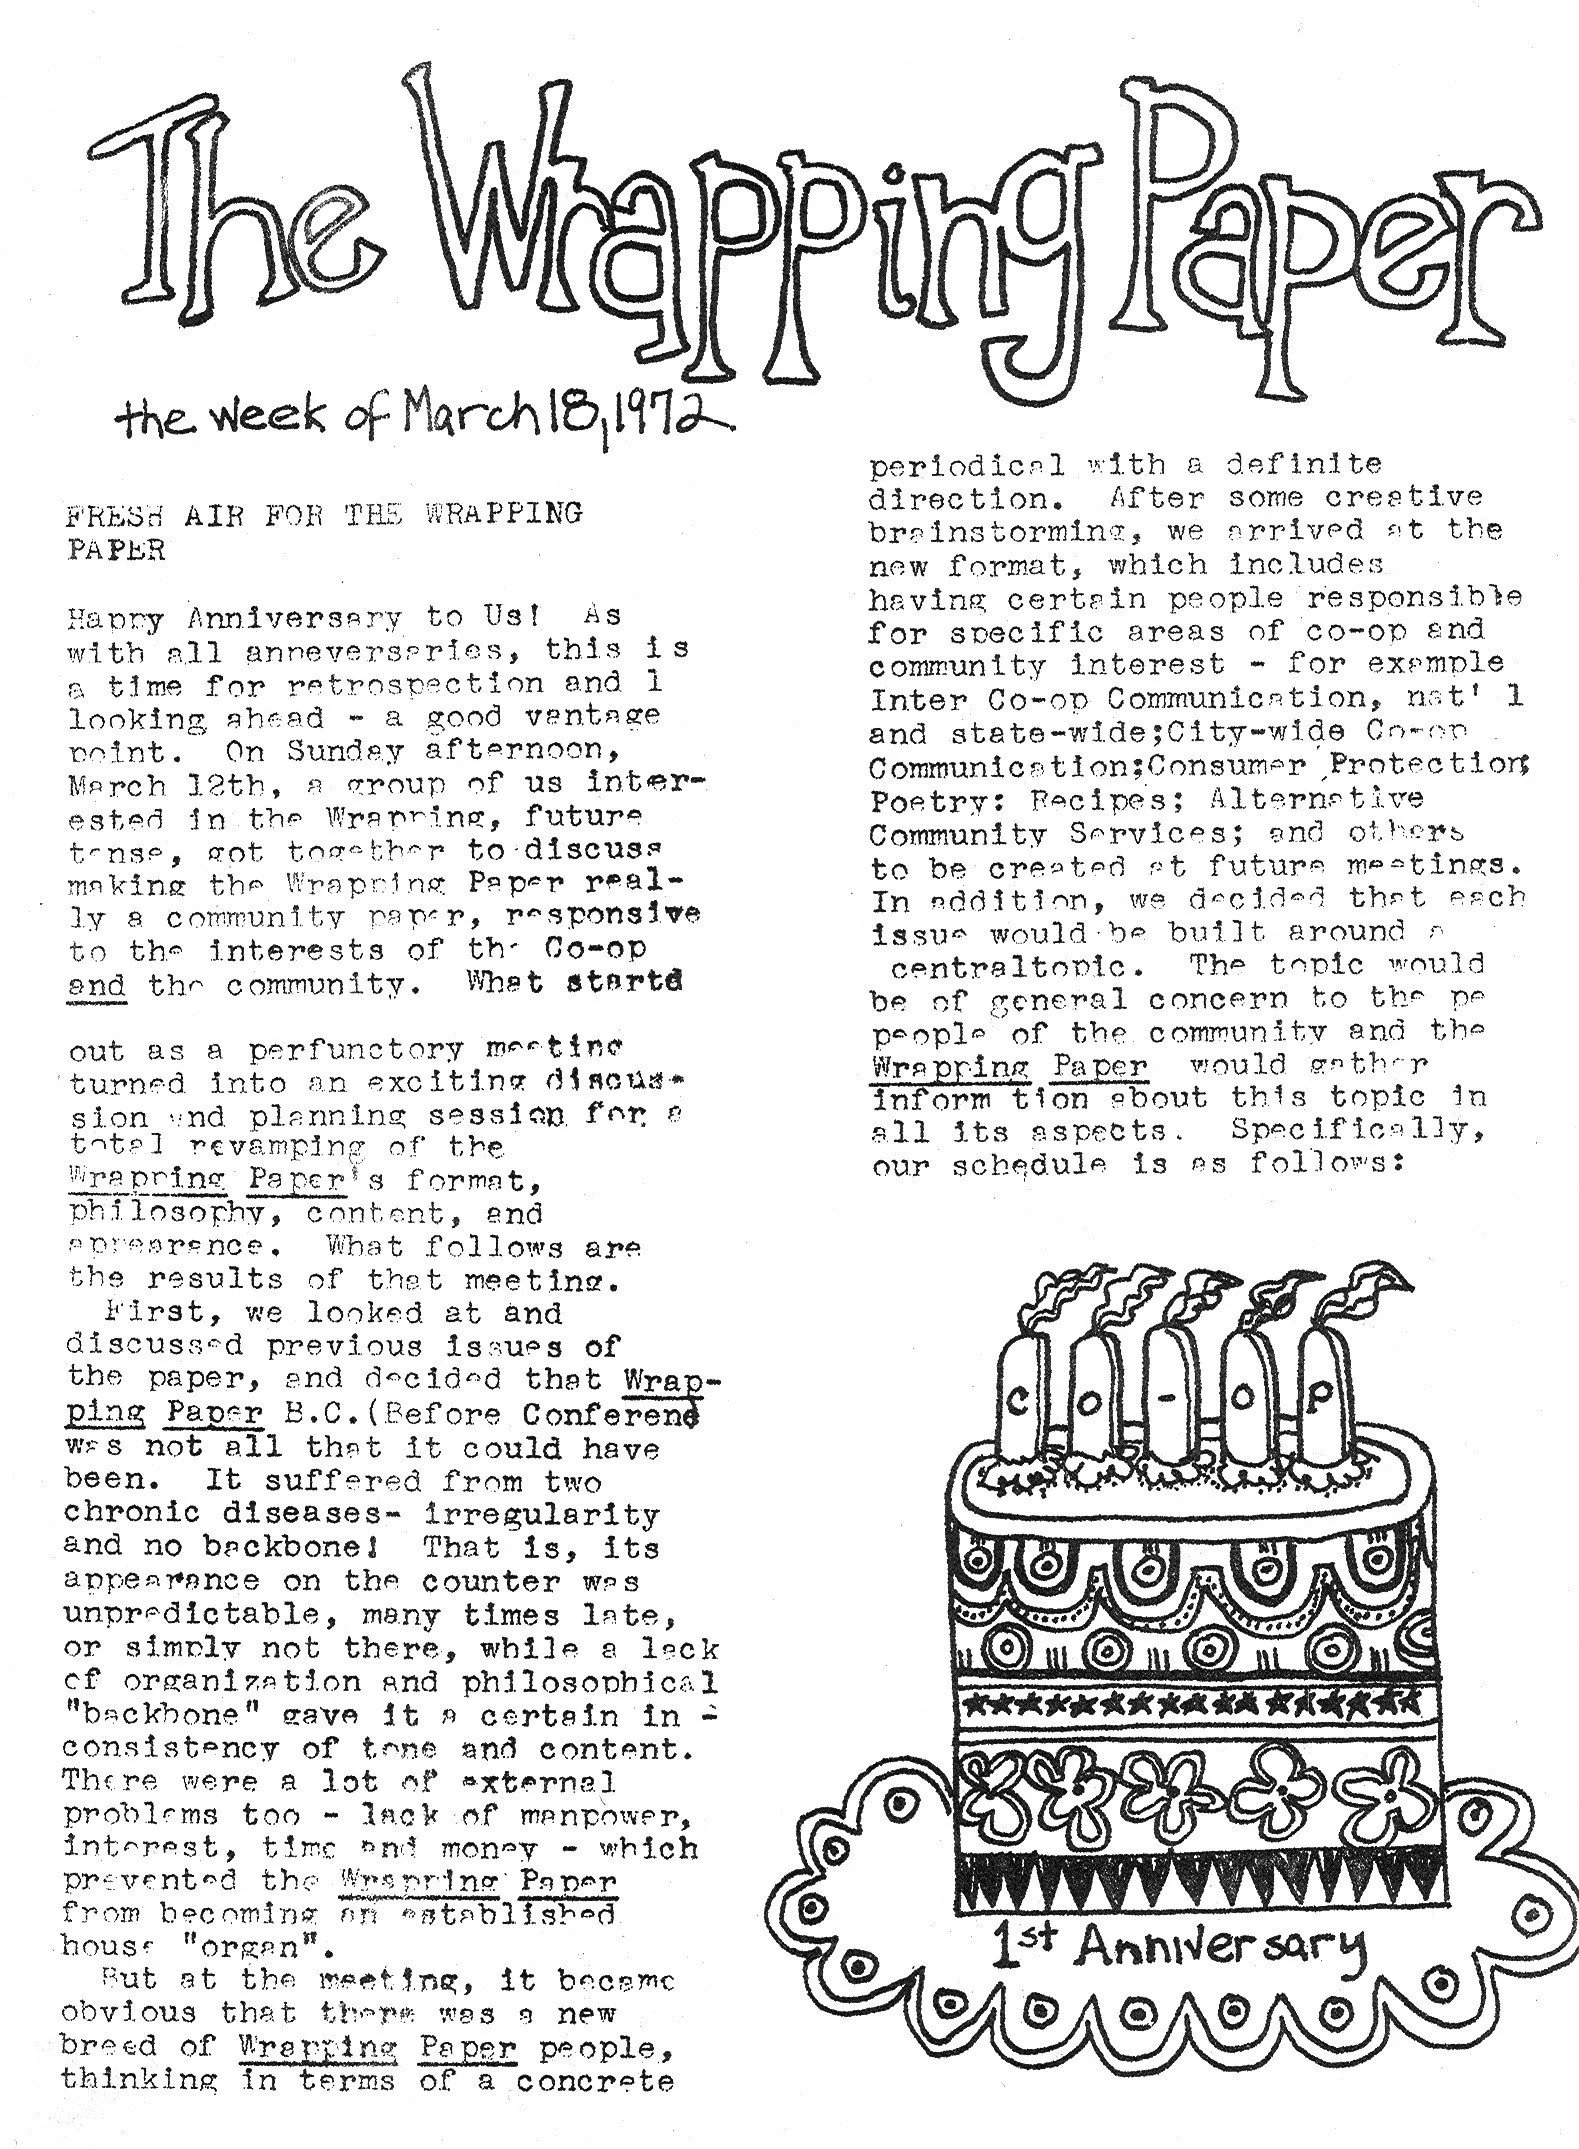 The Wrapping Paper
the week of March 18, 1972
FRESH AIR FOR THE WRAPPING
PAPER
Happy Anniversary to Us! As
with all anneversaries, this is
a time for retrospection and l
looking ahead - a good vantage
point. On Sunday afternoon,
March 12th, a group of us inter-
ested in the Wrapping, future
tense, got together to discuss
making the Wrapping Paper real-
ly a community paper, responsive
to the interests of the Co-op
and the community. What startd
out as a perfunctory meeting
turned into an exciting discus-
sion and planning session for a
total revamping of the
Wrapping Paper's format,
philosophy, content, and
appearance. What follows are
the results of that meeting.
First, we looked at and
discussed previous issues of
the paper, and decided that Wrap-
ping Paper B.C.(Before Conferenc
was not all that it could have
been. It suffered from two
chronic diseases- irregularity
and no backbone! That is, its
appearance on the counter was
unpredictable, many times late,
or simply not there, while a lack
of organization and philosophical
"backbone" gave it a certain in -
consistency of tone and content.
There were a lot of external
problems too - lack of manpower,
interest, time and money - which
prevented the Wrapping Paper
from becoming an established
house "organ".
But at the meeting, it became
obvious that there was a new
breed of Wrapping Paper people,
thinking in terms of a concrete
periodical with a definite
direction. After some creative
brainstorming, we arrived at the
new format, which includes
having certain people responsible
for specific areas of co-op and
community interest - for example
Inter Co-op Communication, nat' l
and state-wide;City-wide Co-op
Communication;Consumer Protection;
Poetry: Recipes; Alternative
Community Services; and others
to be created at future meetings.
In addition, we decided that each
issue would be built around a
centraltopic. The topic would
be of general concern to the pe
people of the community and the
Wrapping Paper would gather
inform tion about this topic in
all its aspects. Specifically,
our schedule is as follows:
CO-OP
1st Anniversary